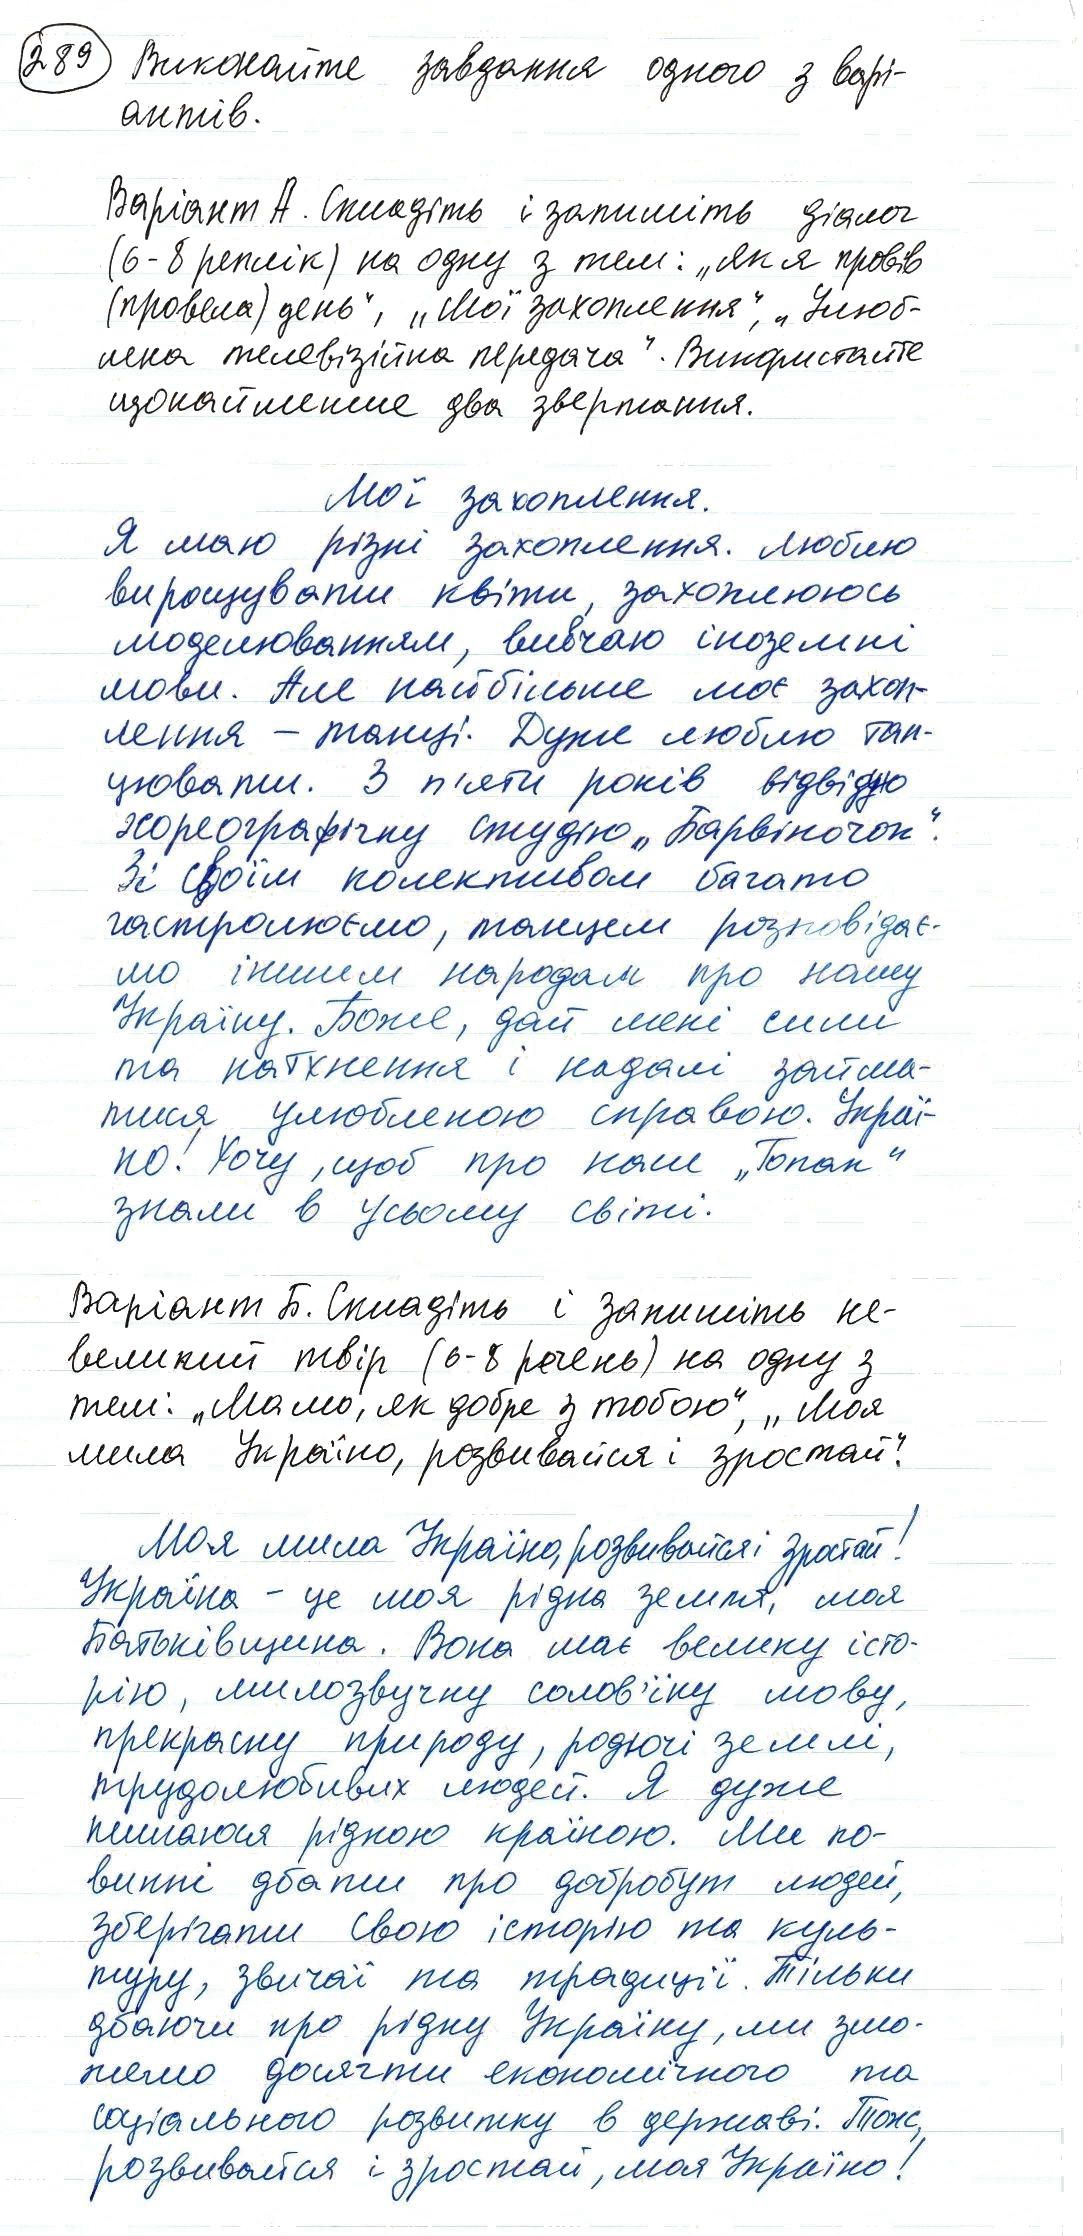 289 Виконайте завдання одного з варі-
антів.
Варіант А. Складіть і запишіть діалог
(6-8 реплік) на одну з тем: „Як я провів
(провела) день", „Мої захоплення", „Улюб-
лена телевізійна передача". Використайте
щонайменше два звертання.
Мої захоплення.
Я маю різні захоплення. Люблю
вирощувати квіти, захоплююсь
моделюванням, вивчаю іноземні
мови. Але найбільше моє захоп-
лення – танці. Дуже люблю тан-
цювати. З п'яти років відвідую
хореографічну студію „Барвіночок".
Зі своїм колективом багато
гастролюємо, танцем розповідає-
мо іншим народам про нашу
Україну. Боже, дай мені сили
та натхнення і надалі займа-
тися улюбленою справою. Украї-
но! Хочу, щоб про наш „Гопак"
знали в усьому світі.
Варіант Б. Складіть і запишіть не-
великий твір (6-8 речень) на одну з
тем: „Мамо, як добре з тобою", „Моя
мила Україно, розвивайся і зростай".
Моя мила Україно, розвивайся і зростай!
Україна – це моя рідна земля, моя
Батьківщина. Вона має велику істо-
рію, милозвучну солов'їну мову,
прекрасну природу, родючі землі,
трудолюбивих людей. Я дуже
пишаюся рідною країною. Ми по-
винні дбати про добробут людей,
зберігати свою історію та куль-
туру, звичаї та традиції. Тільки
дбаючи про рідну Україну, ми змо-
жемо досягти економічного та
соціального розвитку в державі. Тож,
розвивайся і зростай, моя Україно!